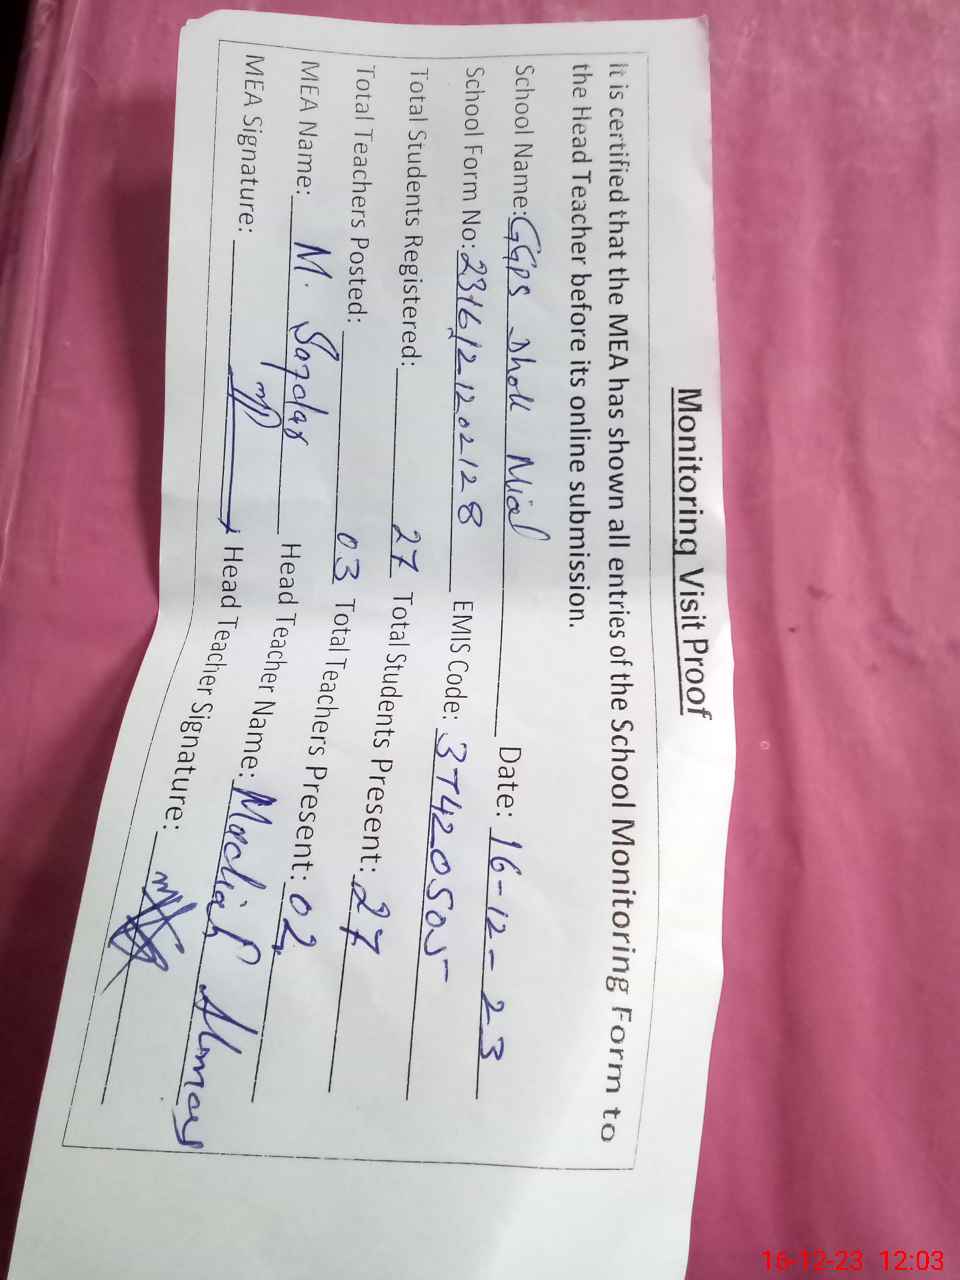 Monitoring Visit Proof
It is certified that the MEA has shown all entries of the School Monitoring Form to
the Head Teacher before its online submission.
School Name: GGPS Dhok Mial Date: 16-12-23
School Form No: 2316121202128 EMIS Code: 37420505
Total Students Registered: 27 Total Students Present: 27
Total Teachers Posted: 03 Total Teachers Present: 02
MEA Name: M. Head Teacher Name:
MEA Signature: Head Teacher Signature:
16-12-23 12:03